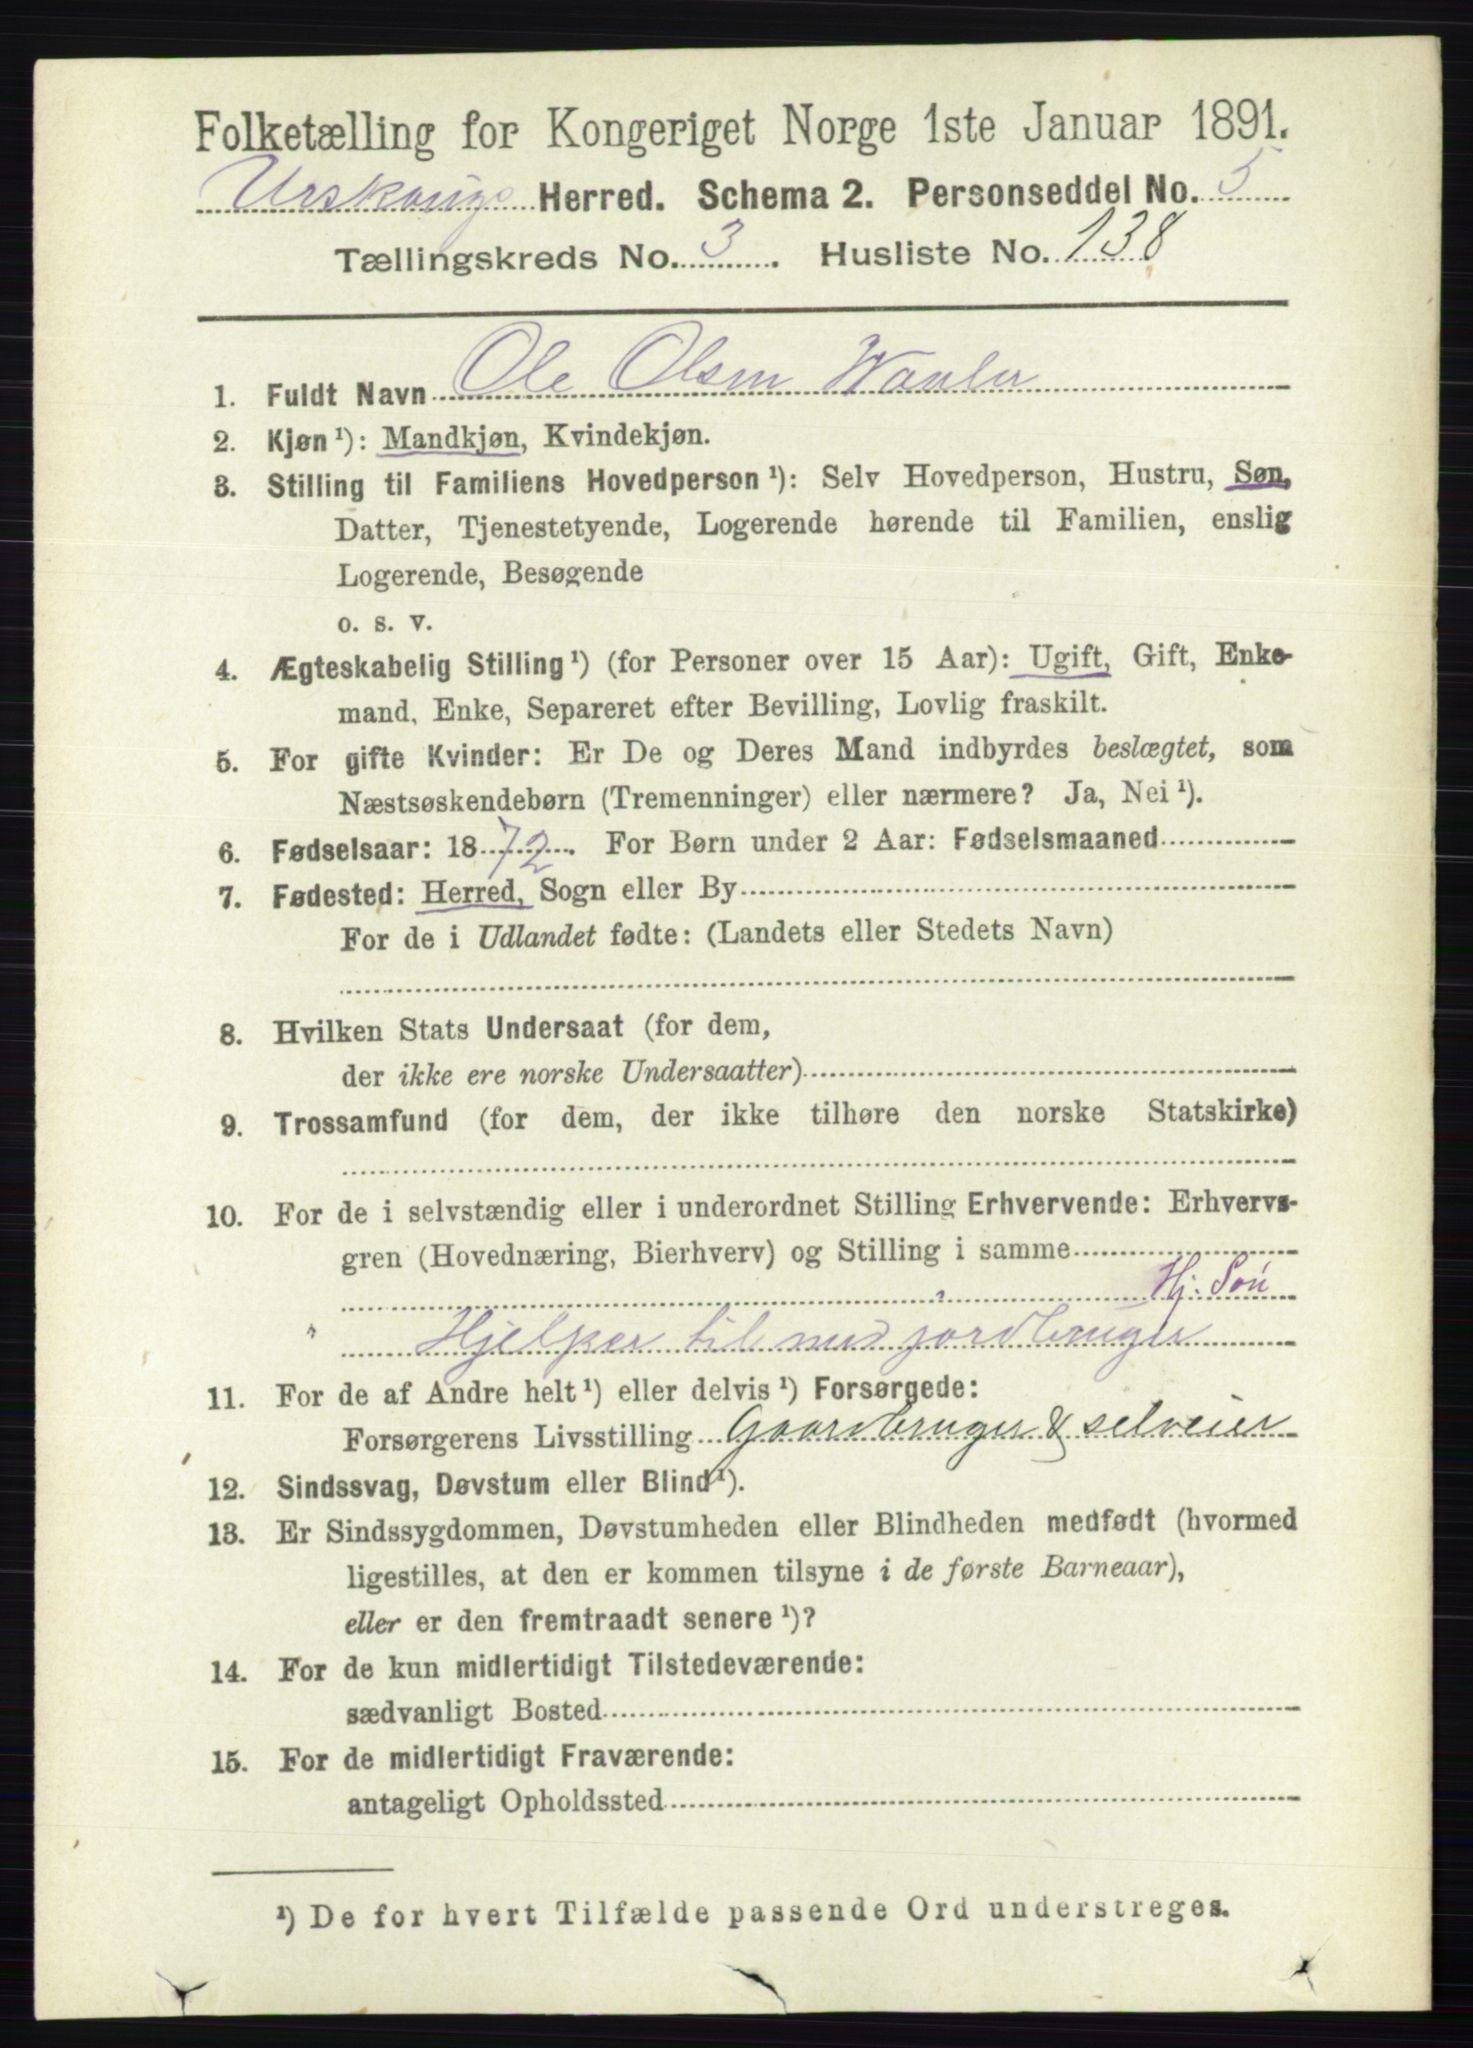 Folketælling for Kongeriget Norge 1ste Januar 1891.
Urskougs Herred. Schema 2. Personseddel No. 5
Tællingskreds No. 3. Husliste No. 138
1. Fuldt Navn Ole Olsen
2. Kjøn ¹): Mandkjøn, Kvindekjøn.
3. Stilling til Familiens Hovedperson ¹): Selv Hovedperson, Hustru, Søn,
Datter, Tjenestetyende, Logerende hørende til Familien, enslig
Logerende, Besøgende
o. s. v.
4. Ægteskabelig Stilling ¹) (for Personer over 15 Aar): Ugift, Gift, Enke-
mand, Enke, Separeret efter Bevilling, Lovlig fraskilt.
5. For gifte Kvinder: Er De og Deres Mand indbyrdes beslægtet, som
Næstsøskendebørn (Tremenninger) eller nærmere? Ja, Nei ¹).
6. Fødselsaar: 1872. For Børn under 2 Aar: Fødselsmaaned
7. Fødested: Herred, Sogn eller By
For de i Udlandet fødte: (Landets eller Stedets Navn)
8. Hvilken Stats Undersaat (for dem,
der ikke ere norske Undersaatter)
9. Trossamfund (for dem, der ikke tilhøre den norske Statskirke)
10. For de i selvstændig eller i underordnet Stilling Erhvervende: Erhvervs-
gren (Hovednæring, Bierhverv) og Stilling i samme
Hj. Søn
" Hjelper til med jordbruger
11. For de af Andre helt ¹) eller delvis ¹) Forsørgede:
Forsørgerens Livsstilling Gaardbruger & selveier
12. Sindssvag, Døvstum eller Blind ¹).
13. Er Sindssygdommen, Døvstumheden eller Blindheden medfødt (hvormed
ligestilles, at den er kommen tilsyne i de første Barneaar),
eller er den fremtraadt senere ¹)?
14. For de kun midlertidigt Tilstedeværende:
sædvanligt Bosted
15. For de midlertidigt Fraværende:
antageligt Opholdssted
¹) De for hvert Tilfælde passende Ord understreges.